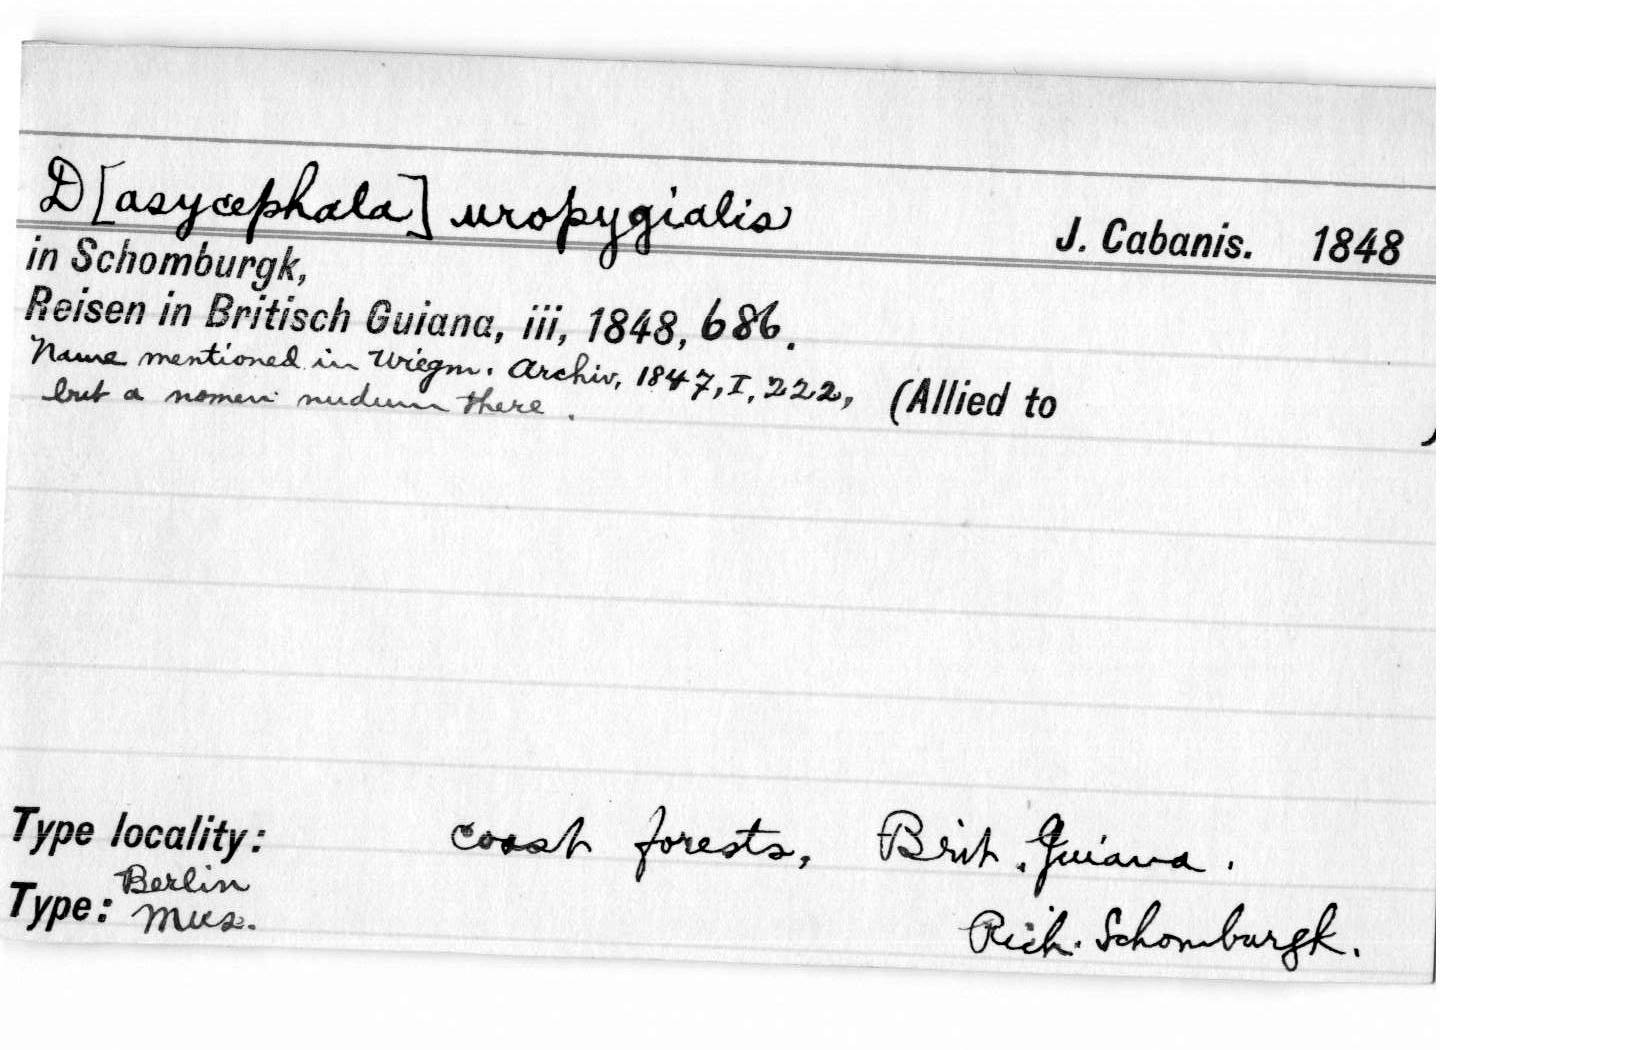 D[asycephala] uropygialis J. Cabanis. 1848
in Schomburgk,
Reisen in Britisch Guiana, iii, 1848, 686.
Name mentioned in Wiegm. Archiv, 1847, I, 222,
but a nomen nudum there. (Allied to )
Type locality: coast forests, Brit. Guiana.
Type: Berlin Mus. Rich. Schomburgk.